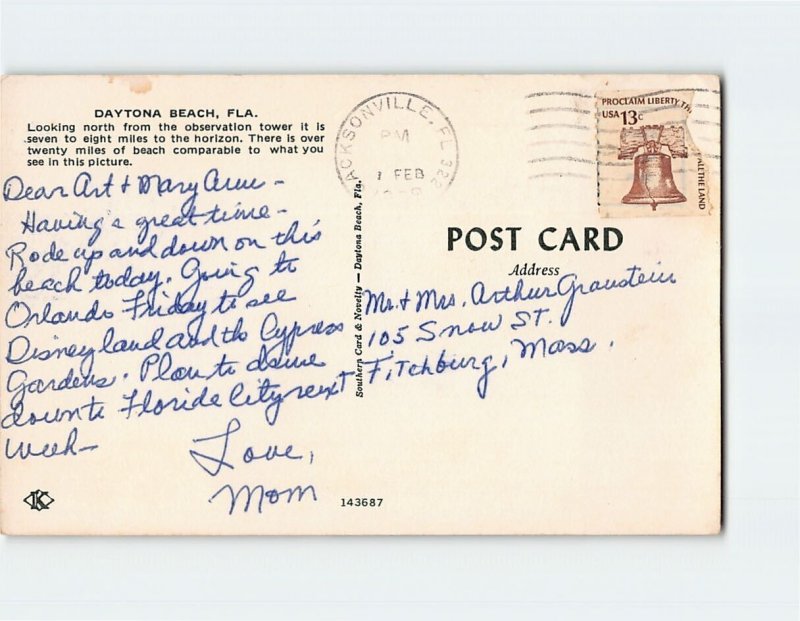 DAYTONA BEACH, FLA.
Looking north from the observation tower it is
seven to eight miles to the horizon. There is over
twenty miles of beach comparable to what you
see in this picture.
Dear Art & Mary Ann -
Having a great time -
Rode up and down on this
beach today. Going to
Orlando Friday to see
Disneyland and to Cypress
Gardens. Plan to drive
down to Floride City next
week -
Love,
Mom
143687
K
Southern Card & Novelty — Daytona Beach, Fla.
JACKSONVILLE, FL 322
PM
1 FEB
PROCLAIM LIBERTY
USA 13c
ALL THE LAND
POST CARD
Address
Mr. & Mrs. Arthur Graustein
105 Snow ST.
Fitchburg, Mass.